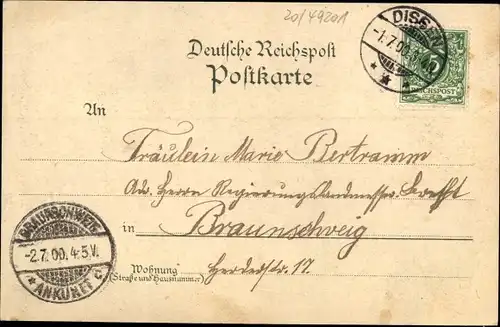 20/49201
DISSEN
-1.7.00.
5
REICHSPOST
Deutsche Reichspost
Postkarte
An
Fräulein Marie Bertramm
Adr. Herrn Regierungslandmesser
in Braunschweig
BRAUNSCHWEIG
-2.7.00.4-5.V.
*ANKUNFT C.*
Wohnung
(Straße und Hausnummer)